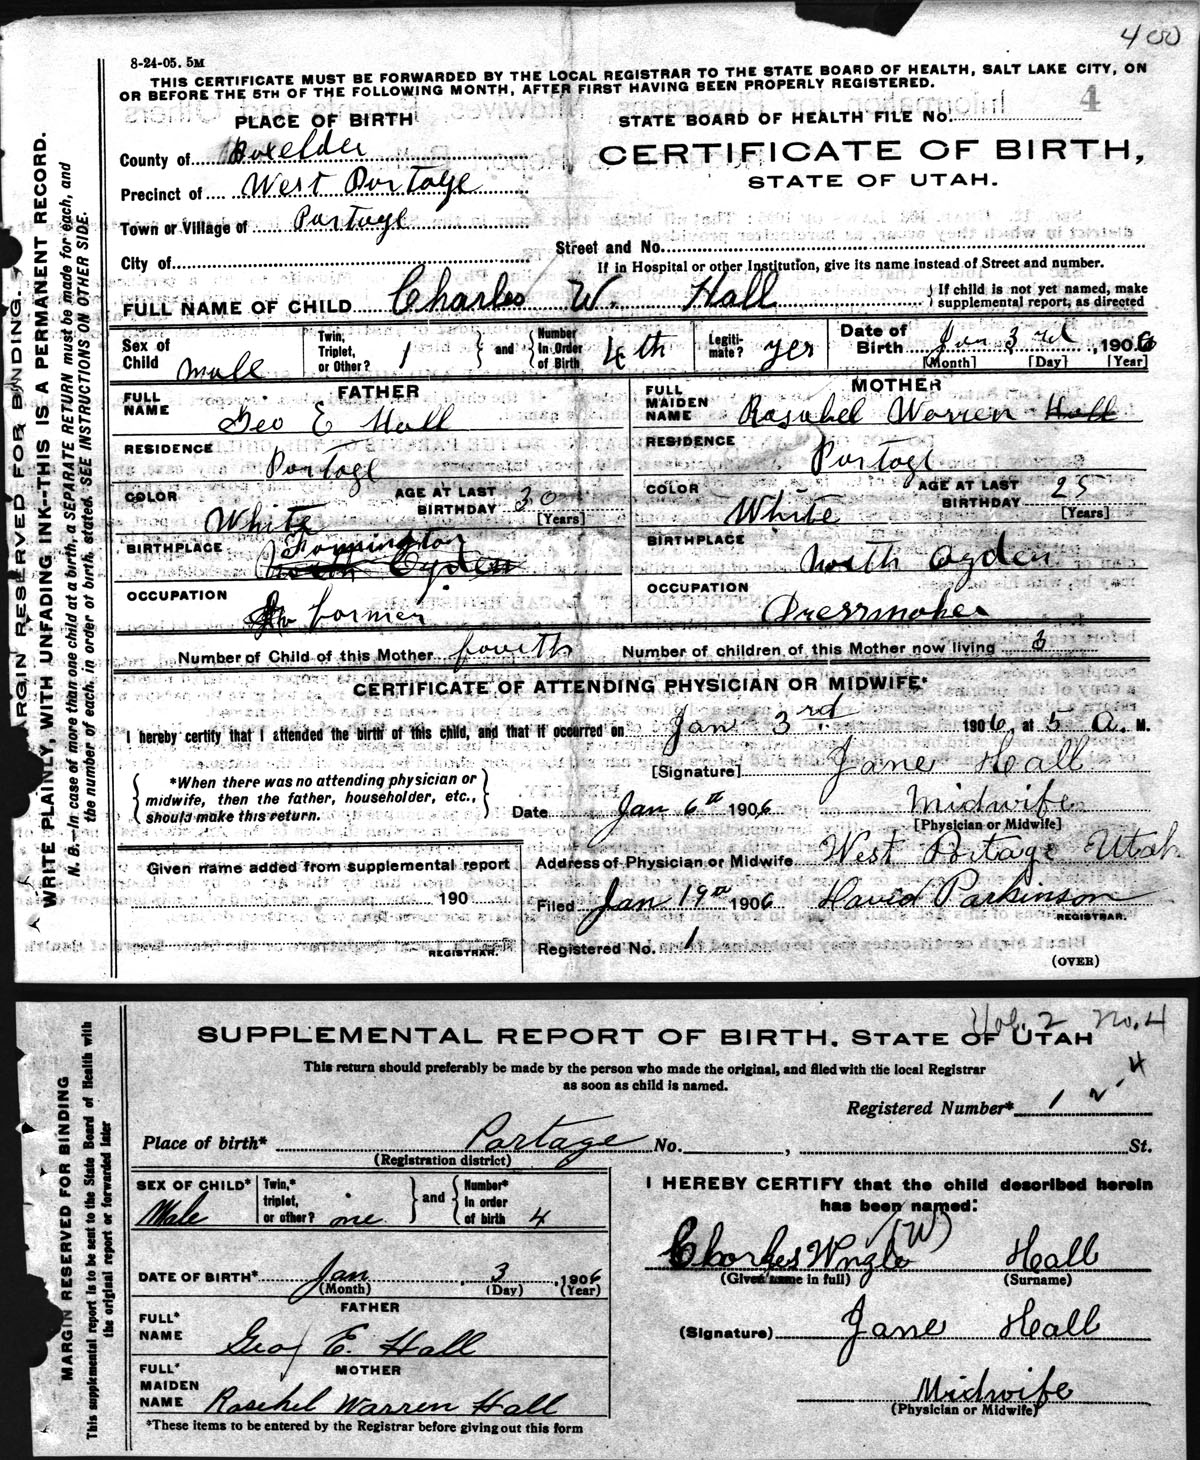 400
8-24-05. 5M
THIS CERTIFICATE MUST BE FORWARDED BY THE LOCAL REGISTRAR TO THE STATE BOARD OF HEALTH, SALT LAKE CITY, ON
OR BEFORE THE 5TH OF THE FOLLOWING MONTH, AFTER FIRST HAVING BEEN PROPERLY REGISTERED.
PLACE OF BIRTH
STATE BOARD OF HEALTH FILE No. 4
County of Boxelder
CERTIFICATE OF BIRTH,
STATE OF UTAH.
Precinct of West Portage
Town or Village of Portage
Street and No.
City of
If in Hospital or other Institution, give its name instead of Street and number.
FULL NAME OF CHILD Charles W. Hall
If child is not yet named, make
supplemental report, as directed
Sex of Child Male
Twin, Triplet, or Other? 1 and Number in Order of Birth 4th
Legitimate? yes
Date of Birth Jan 3rd, 1906
[Month] [Day] [Year]
FATHER
FULL NAME Geo E Hall
RESIDENCE Portage
COLOR White
AGE AT LAST BIRTHDAY 30
[Years]
BIRTHPLACE Farmington
North Ogden
OCCUPATION farmer
MOTHER
FULL MAIDEN NAME Rosabel Warren Hall
RESIDENCE Portage
COLOR White
AGE AT LAST BIRTHDAY 25
[Years]
BIRTHPLACE North Ogden
OCCUPATION Dressmaker
Number of Child of this Mother fourth Number of children of this Mother now living 3
CERTIFICATE OF ATTENDING PHYSICIAN OR MIDWIFE*
I hereby certify that I attended the birth of this child, and that if occurred on Jan 3rd 1906, at 5 a. M.
*When there was no attending physician or
midwife, then the father, householder, etc.,
should make this return.
[Signature] Jane Hall
Date Jan 6th 1906 Midwife
[Physician or Midwife]
Given name added from supplemental report
190
REGISTRAR.
Address of Physician or Midwife West Portage Utah
Filed Jan 19th 1906 David Parkinson
REGISTRAR.
Registered No. 1
(OVER)
MARGIN RESERVED FOR BINDING.
WRITE PLAINLY, WITH UNFADING INK--THIS IS A PERMANENT RECORD.
N. B.—In case of more than one child at a birth, a SEPARATE RETURN must be made for each, and
the number of each, in order of birth, stated. SEE INSTRUCTIONS ON OTHER SIDE.
Vol. 2 No. 4
SUPPLEMENTAL REPORT OF BIRTH, STATE OF UTAH
This return should preferably be made by the person who made the original, and filed with the local Registrar
as soon as child is named.
Registered Number* 1 2-4
Place of birth* Portage No. , St.
(Registration district)
SEX OF CHILD* Male
Twin,* triplet, or other? one and Number* in order of birth 4
DATE OF BIRTH* Jan 3, 1906
(Month) (Day) (Year)
FATHER
FULL* NAME Geo E. Hall
MOTHER
FULL* MAIDEN NAME Rosebel Warren Hall
*These items to be entered by the Registrar before giving out this form
I HEREBY CERTIFY that the child described herein
has been named:
(W)
Charles Hall
(Given name in full) (Surname)
(Signature) Jane Hall
Midwife
(Physician or Midwife)
MARGIN RESERVED FOR BINDING
This supplemental report is to be sent to the State Board of Health with
the original report or forwarded later